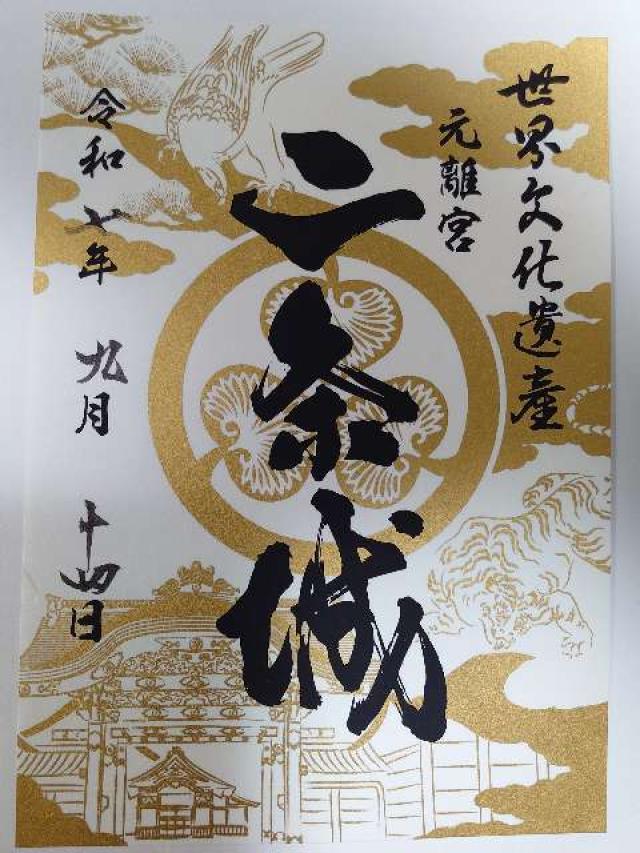 世界文化遺産
元離宮
二条城
令和七年 九月 十四日